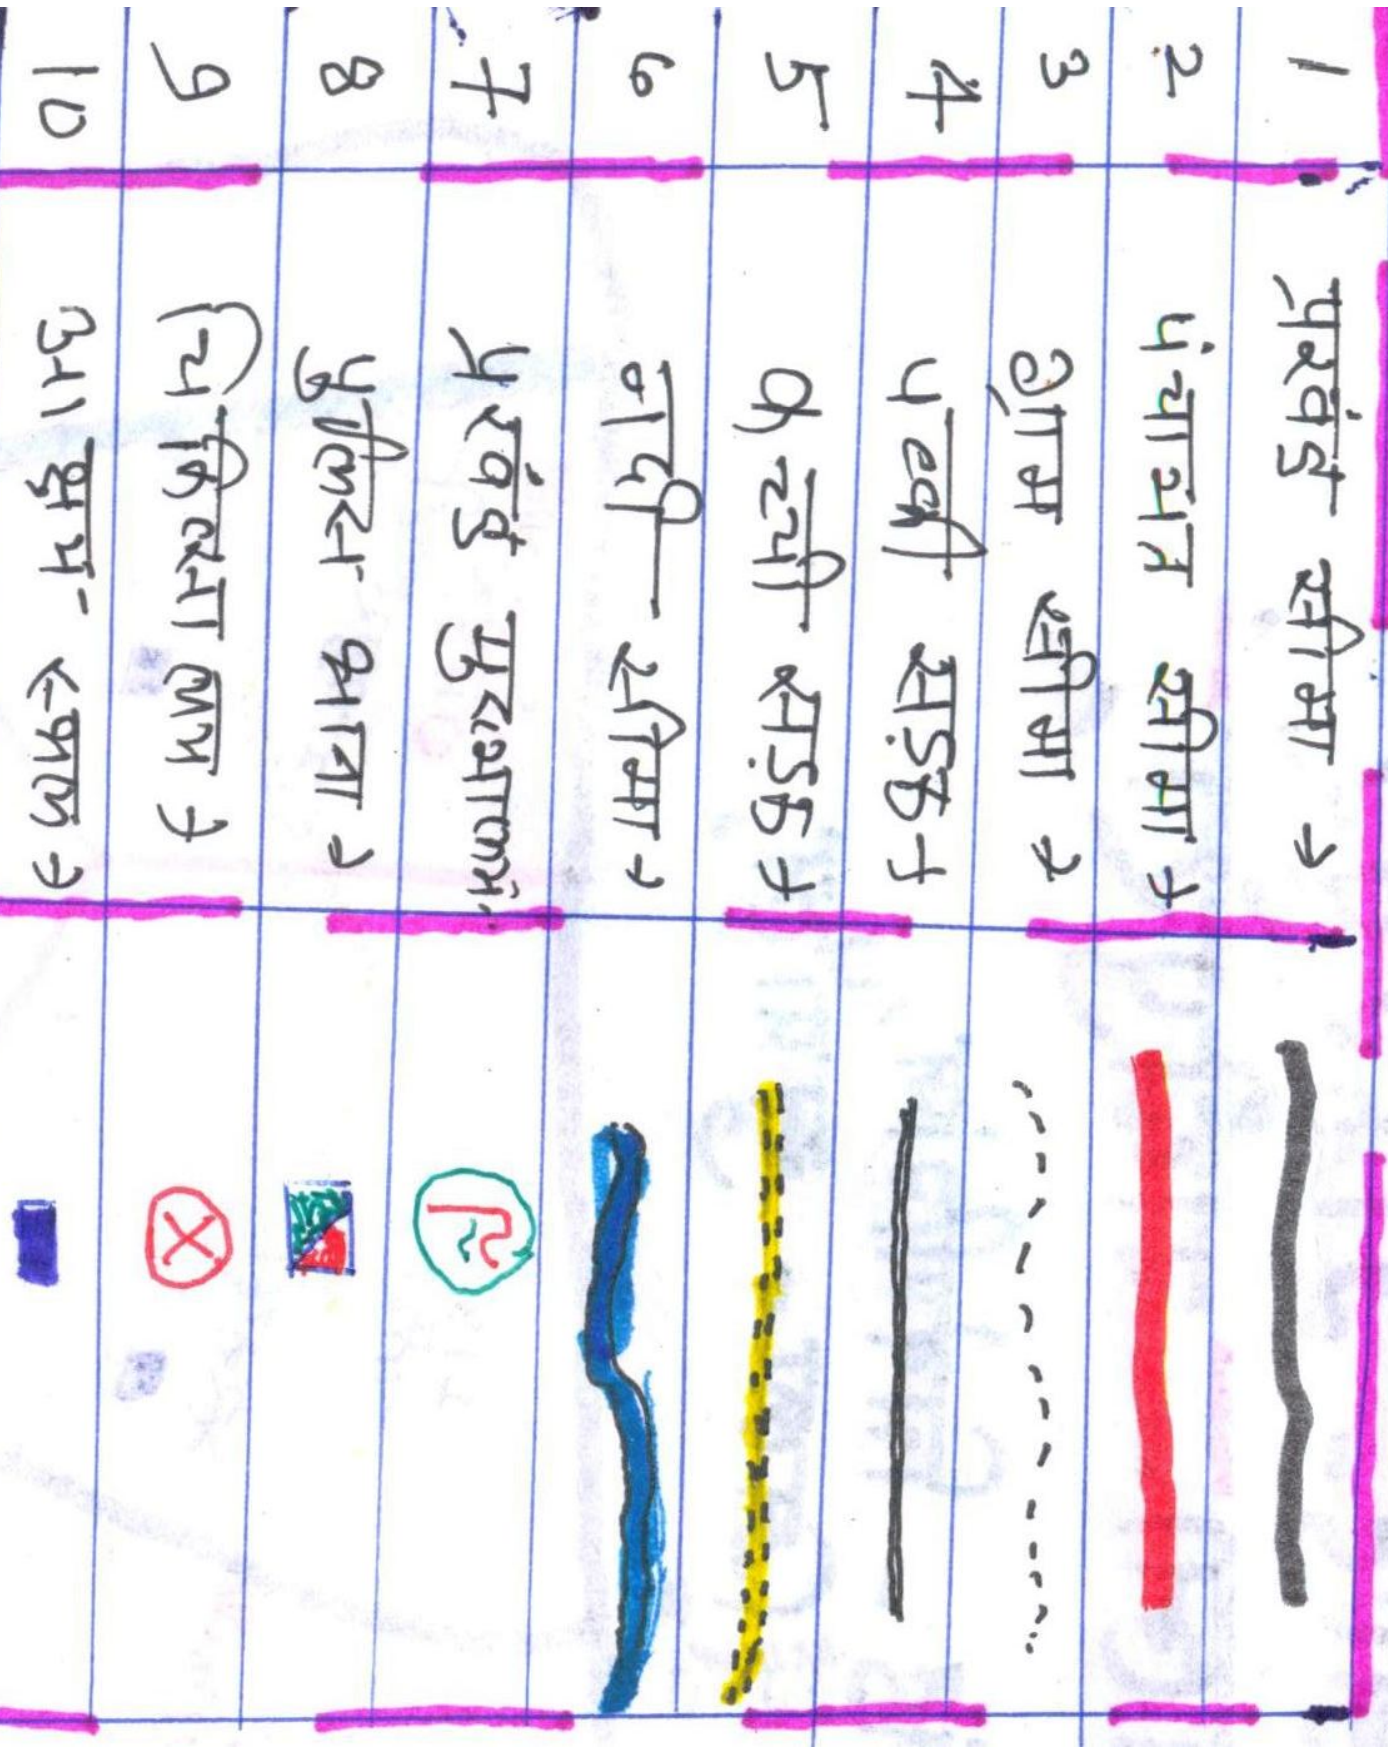 1 प्रखंड सीमा →
2 पंचायत सीमा →
3 ग्राम सीमा →
4 पक्की सड़क →
5 कच्ची सड़क →
6 नदी सीमा →
7 प्रखंड मुख्यालय
8 पुलिस थाना →
9 चिकित्सालय →
10 आश्रम स्थल →